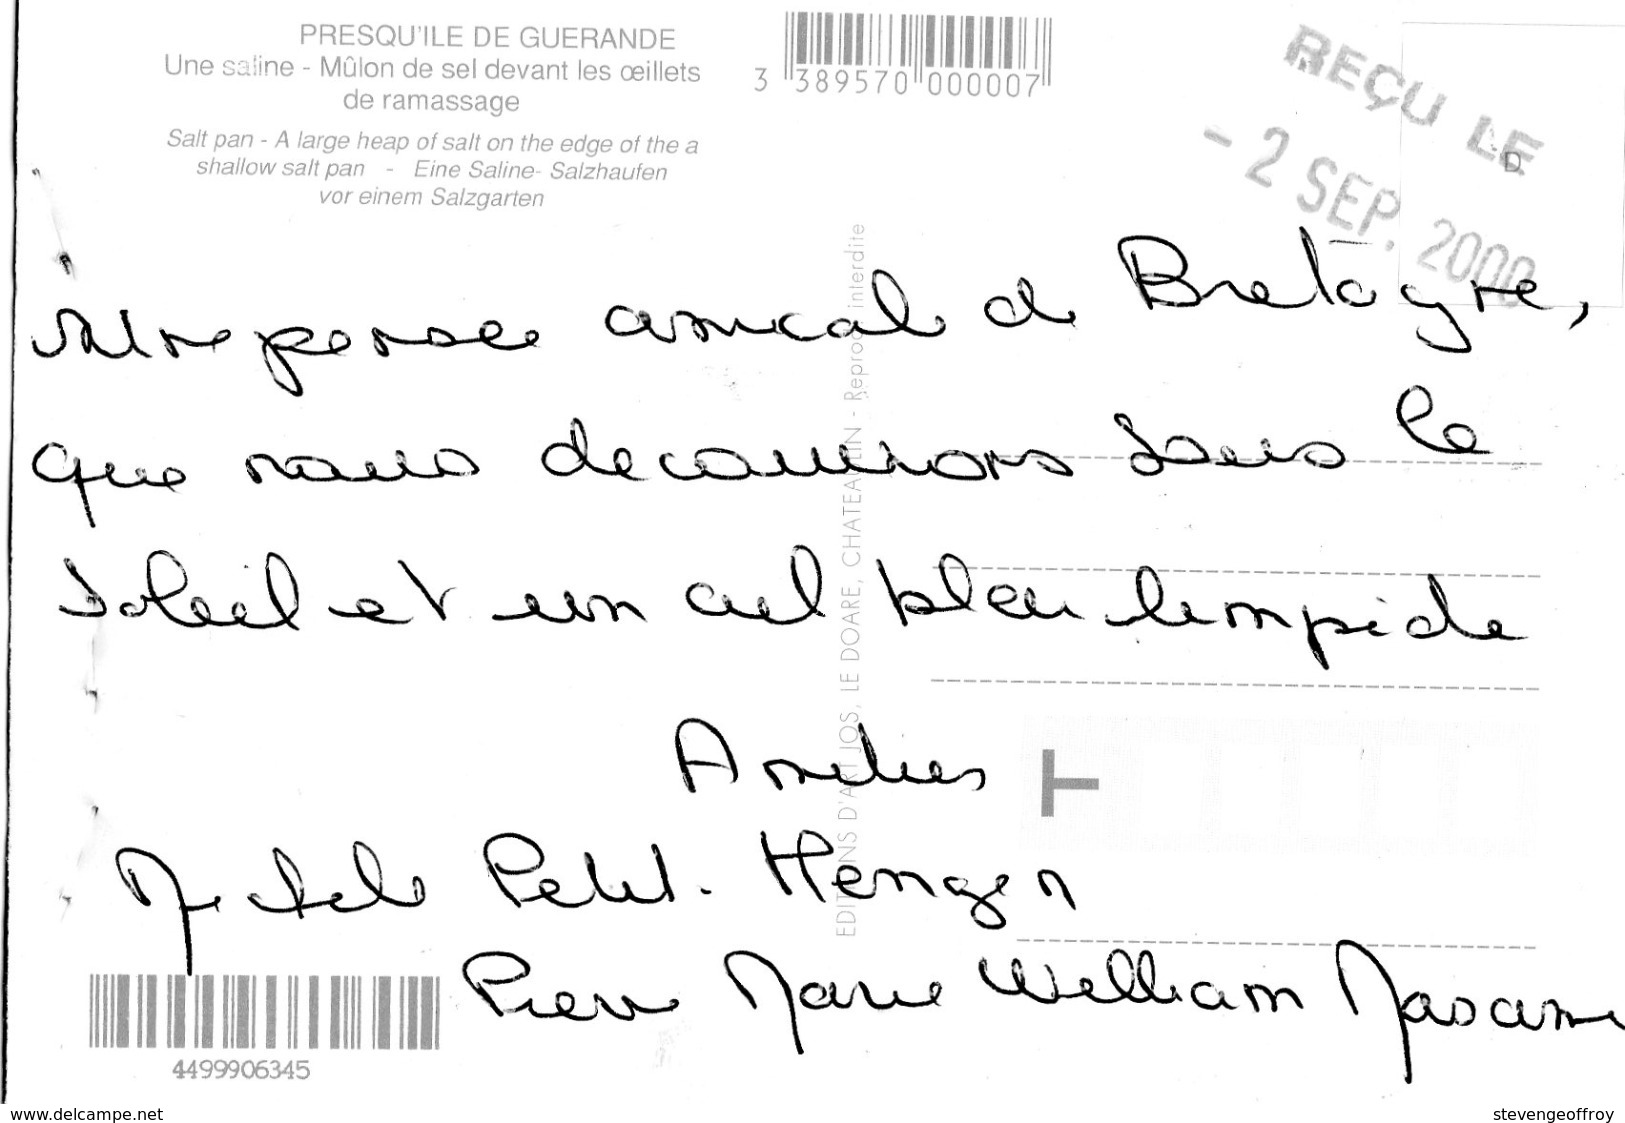 PRESQU'ILE DE GUERANDE
Une saline - Mûlon de sel devant les œillets
de ramassage
Salt pan - A large heap of salt on the edge of the a
shallow salt pan - Eine Saline- Salzhaufen
vor einem Salzgarten
3 389570 000007
REÇU LE
- 2 SEP. 2000
D
pensee amicale de Bretagne,
que nous decouvrons sous le
Soleil et un ciel bleu limpide
Amities
Michele Petit. Hengen
Pierre Marie William
EDITIONS D'ART JOS, LE DOARE, CHATEAULIN - Reproduction interdite
T
4499906345
www.delcampe.net
stevengeoffroy